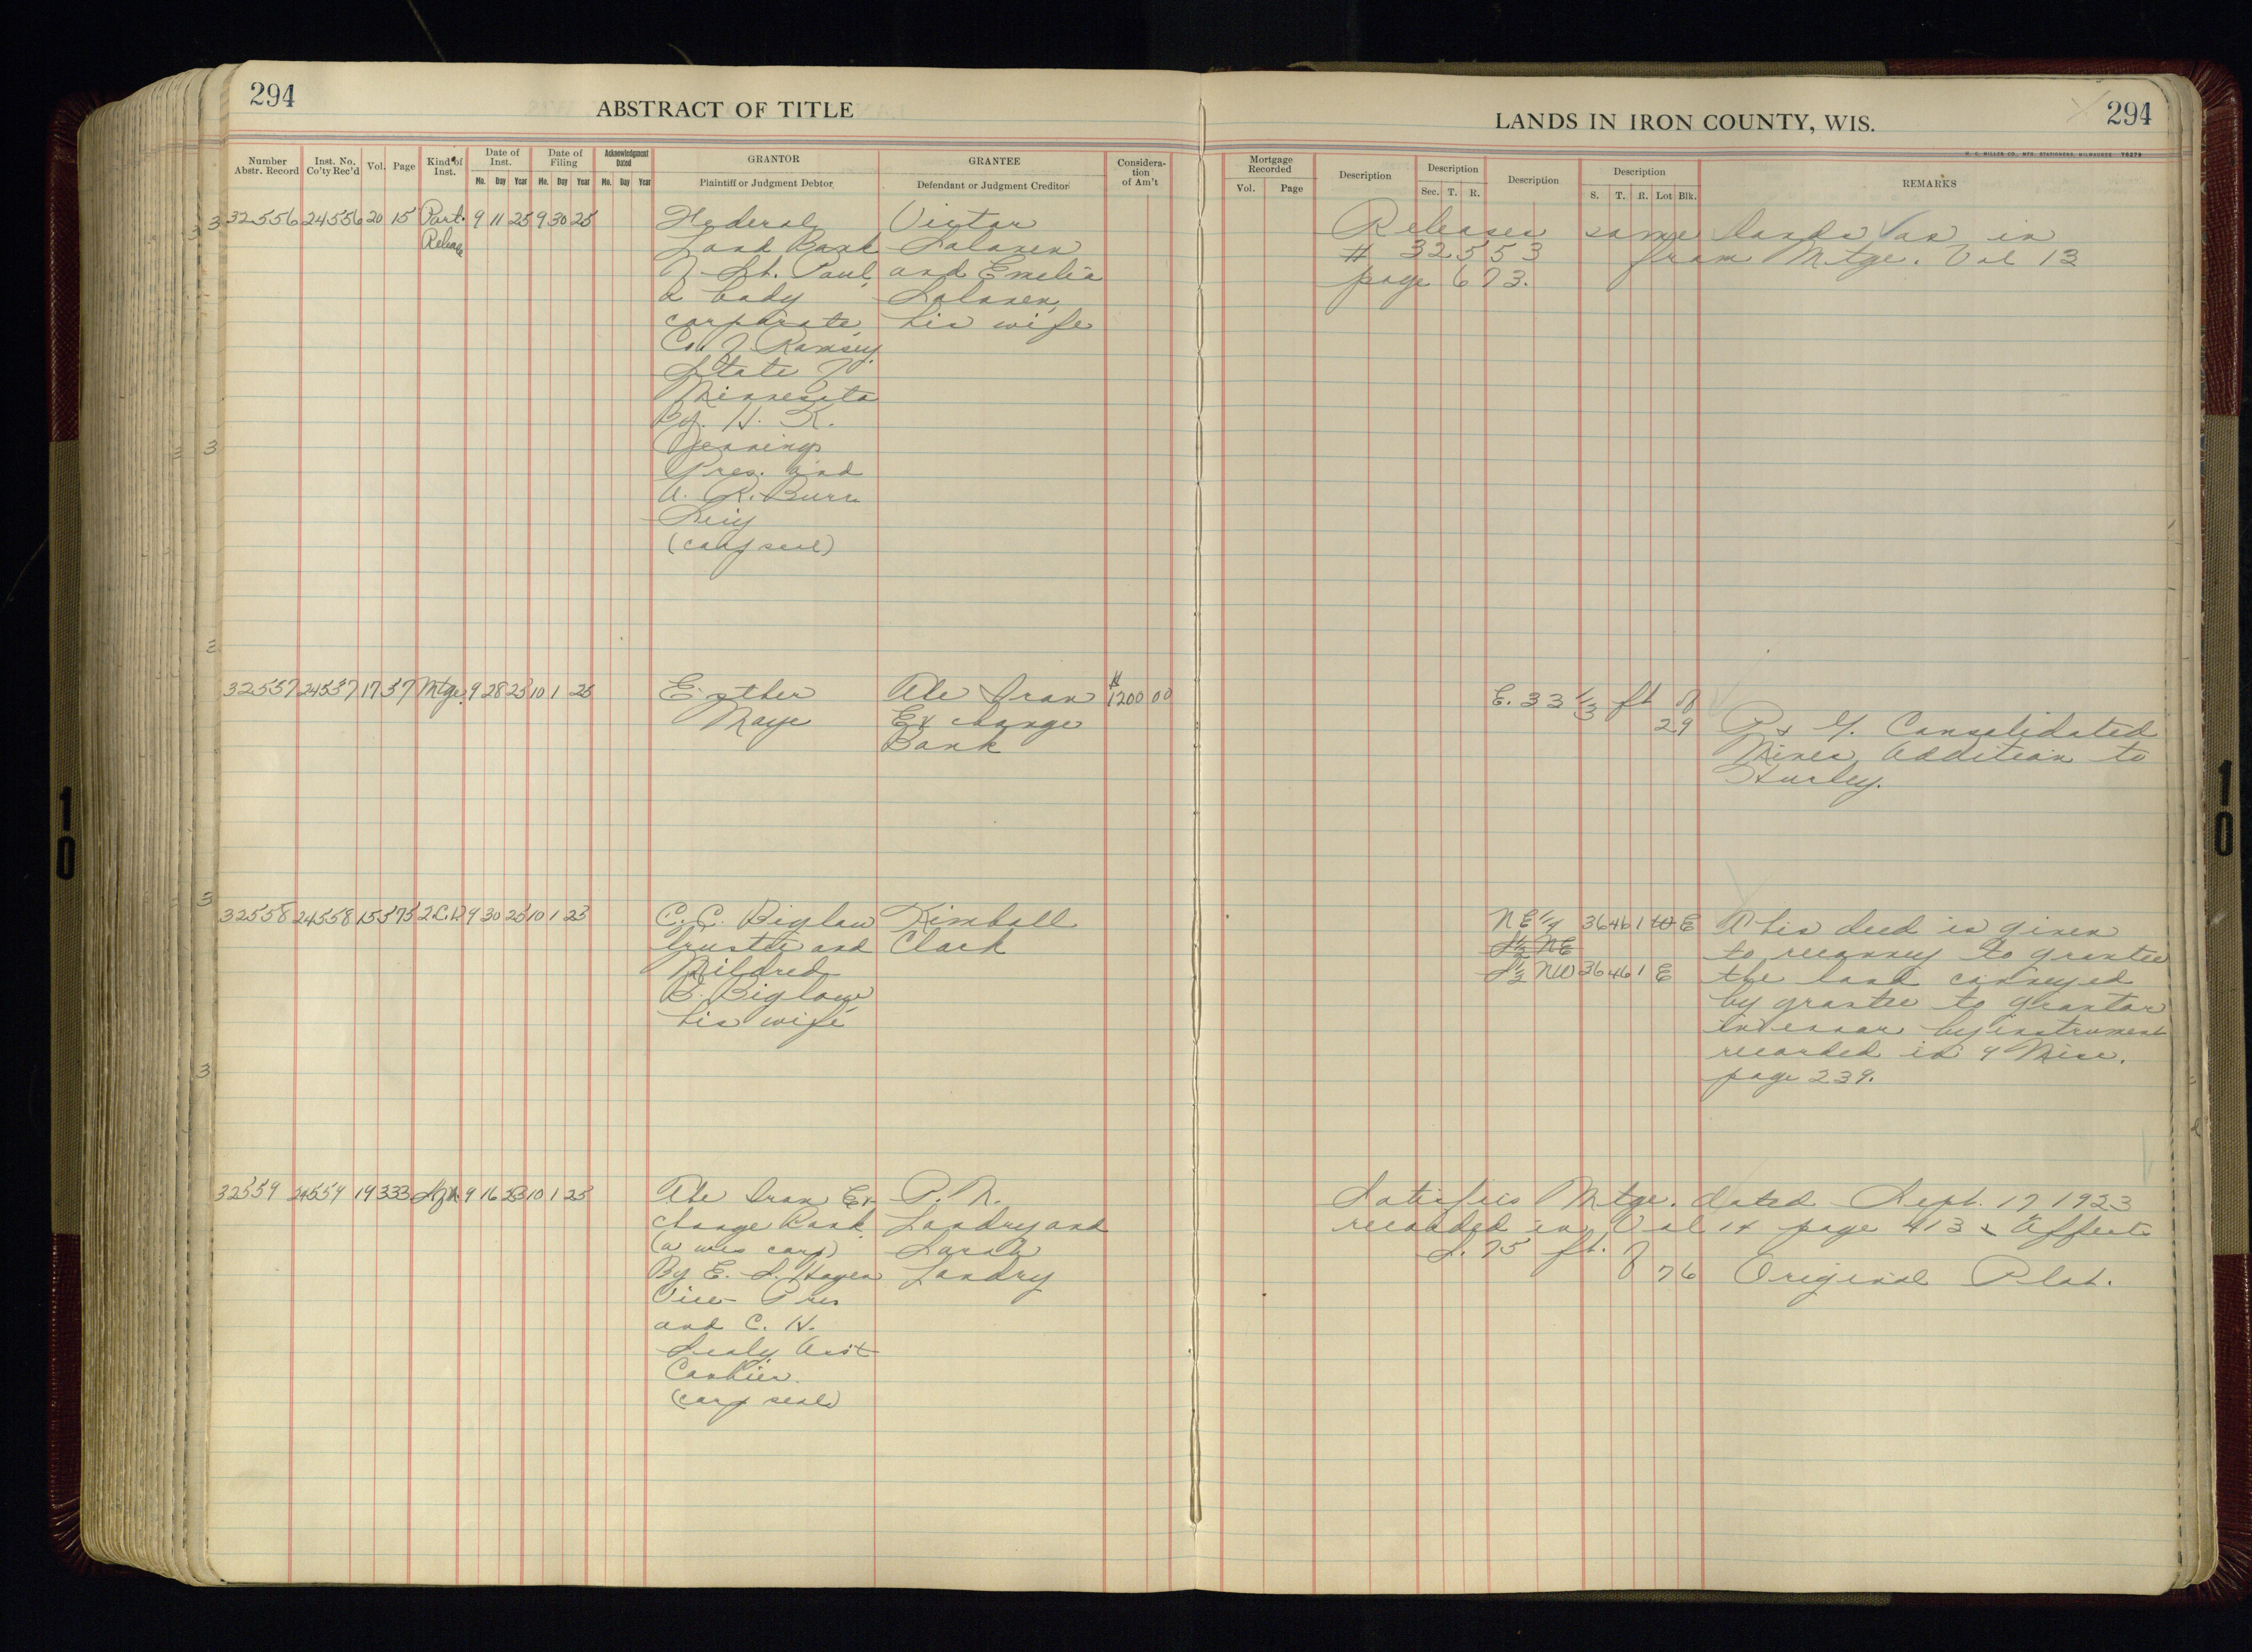 294
ABSTRACT OF TITLE
LANDS IN IRON COUNTY, WIS.
294
Number Abstr. Record
Inst. No. Co'ty Rec'd
Vol.
Page
Kind of Inst.
Date of Inst.
Mo. Day Year
Date of Filing
Mo. Day Year
Acknowledgment Dated
Mo. Day Year
GRANTOR
Plaintiff or Judgment Debtor
GRANTEE
Defendant or Judgment Creditor
Considera-
tion
of Am't
Mortgage Recorded
Vol. Page
Description
Description
Sec. T. R.
Description
Description
S. T. R. Lot Blk.
REMARKS
32556 24556 20 15 Part. 9 11 25 9 30 25
Release
Federal
Land Bank
of St. Paul,
a body
corporate,
Co. of Ramsey
State of
Minnesota
By. H. K.
Jennings
Pres. and
A. R. Burr
Secy
(corp seal)
Victor
Lalanen
and Emelia
Lalanen,
his wife
Releases same lands as in
# 32553 from Mtge. Vol 13
page 673.
32557 24557 17 57 Mtge. 9 28 25 10 1 25
Esther
Maye
The Iron
Exchange
Bank
$1200 00
E. 33 1/3 ft of
29
P & G. Consolidated
Mines Addition to
Hurley.
32558 24558 15 575 2 C.D 9 30 25 10 1 25
C. C. Biglow
trustee and
Mildred
B. Biglow
his wife
Kimball
Clark
NE 1/4 36 46 1 W E
S 1/2 NE
S 1/2 NW 36 46 1 E
This deed is given
to reconvey to grantee
the land conveyed
by grantee to grantor
in error by instrument
recorded in 4 Misc.
page 239.
32559 24559 19 333 9 16 25 10 1 25
The Iron Ex-
change Bank
(a wis corp)
By E. S. Hayen
Vice-Pres
and C. H.
Sealy Asst
Cashier.
(corp seal)
P. N.
Landry and
Sarah
Landry
Satisfies Mtge. dated Sept. 17 1923
recorded in Vol 14 page 413 & Affects
S. 75 ft. of
76 Original Plat.